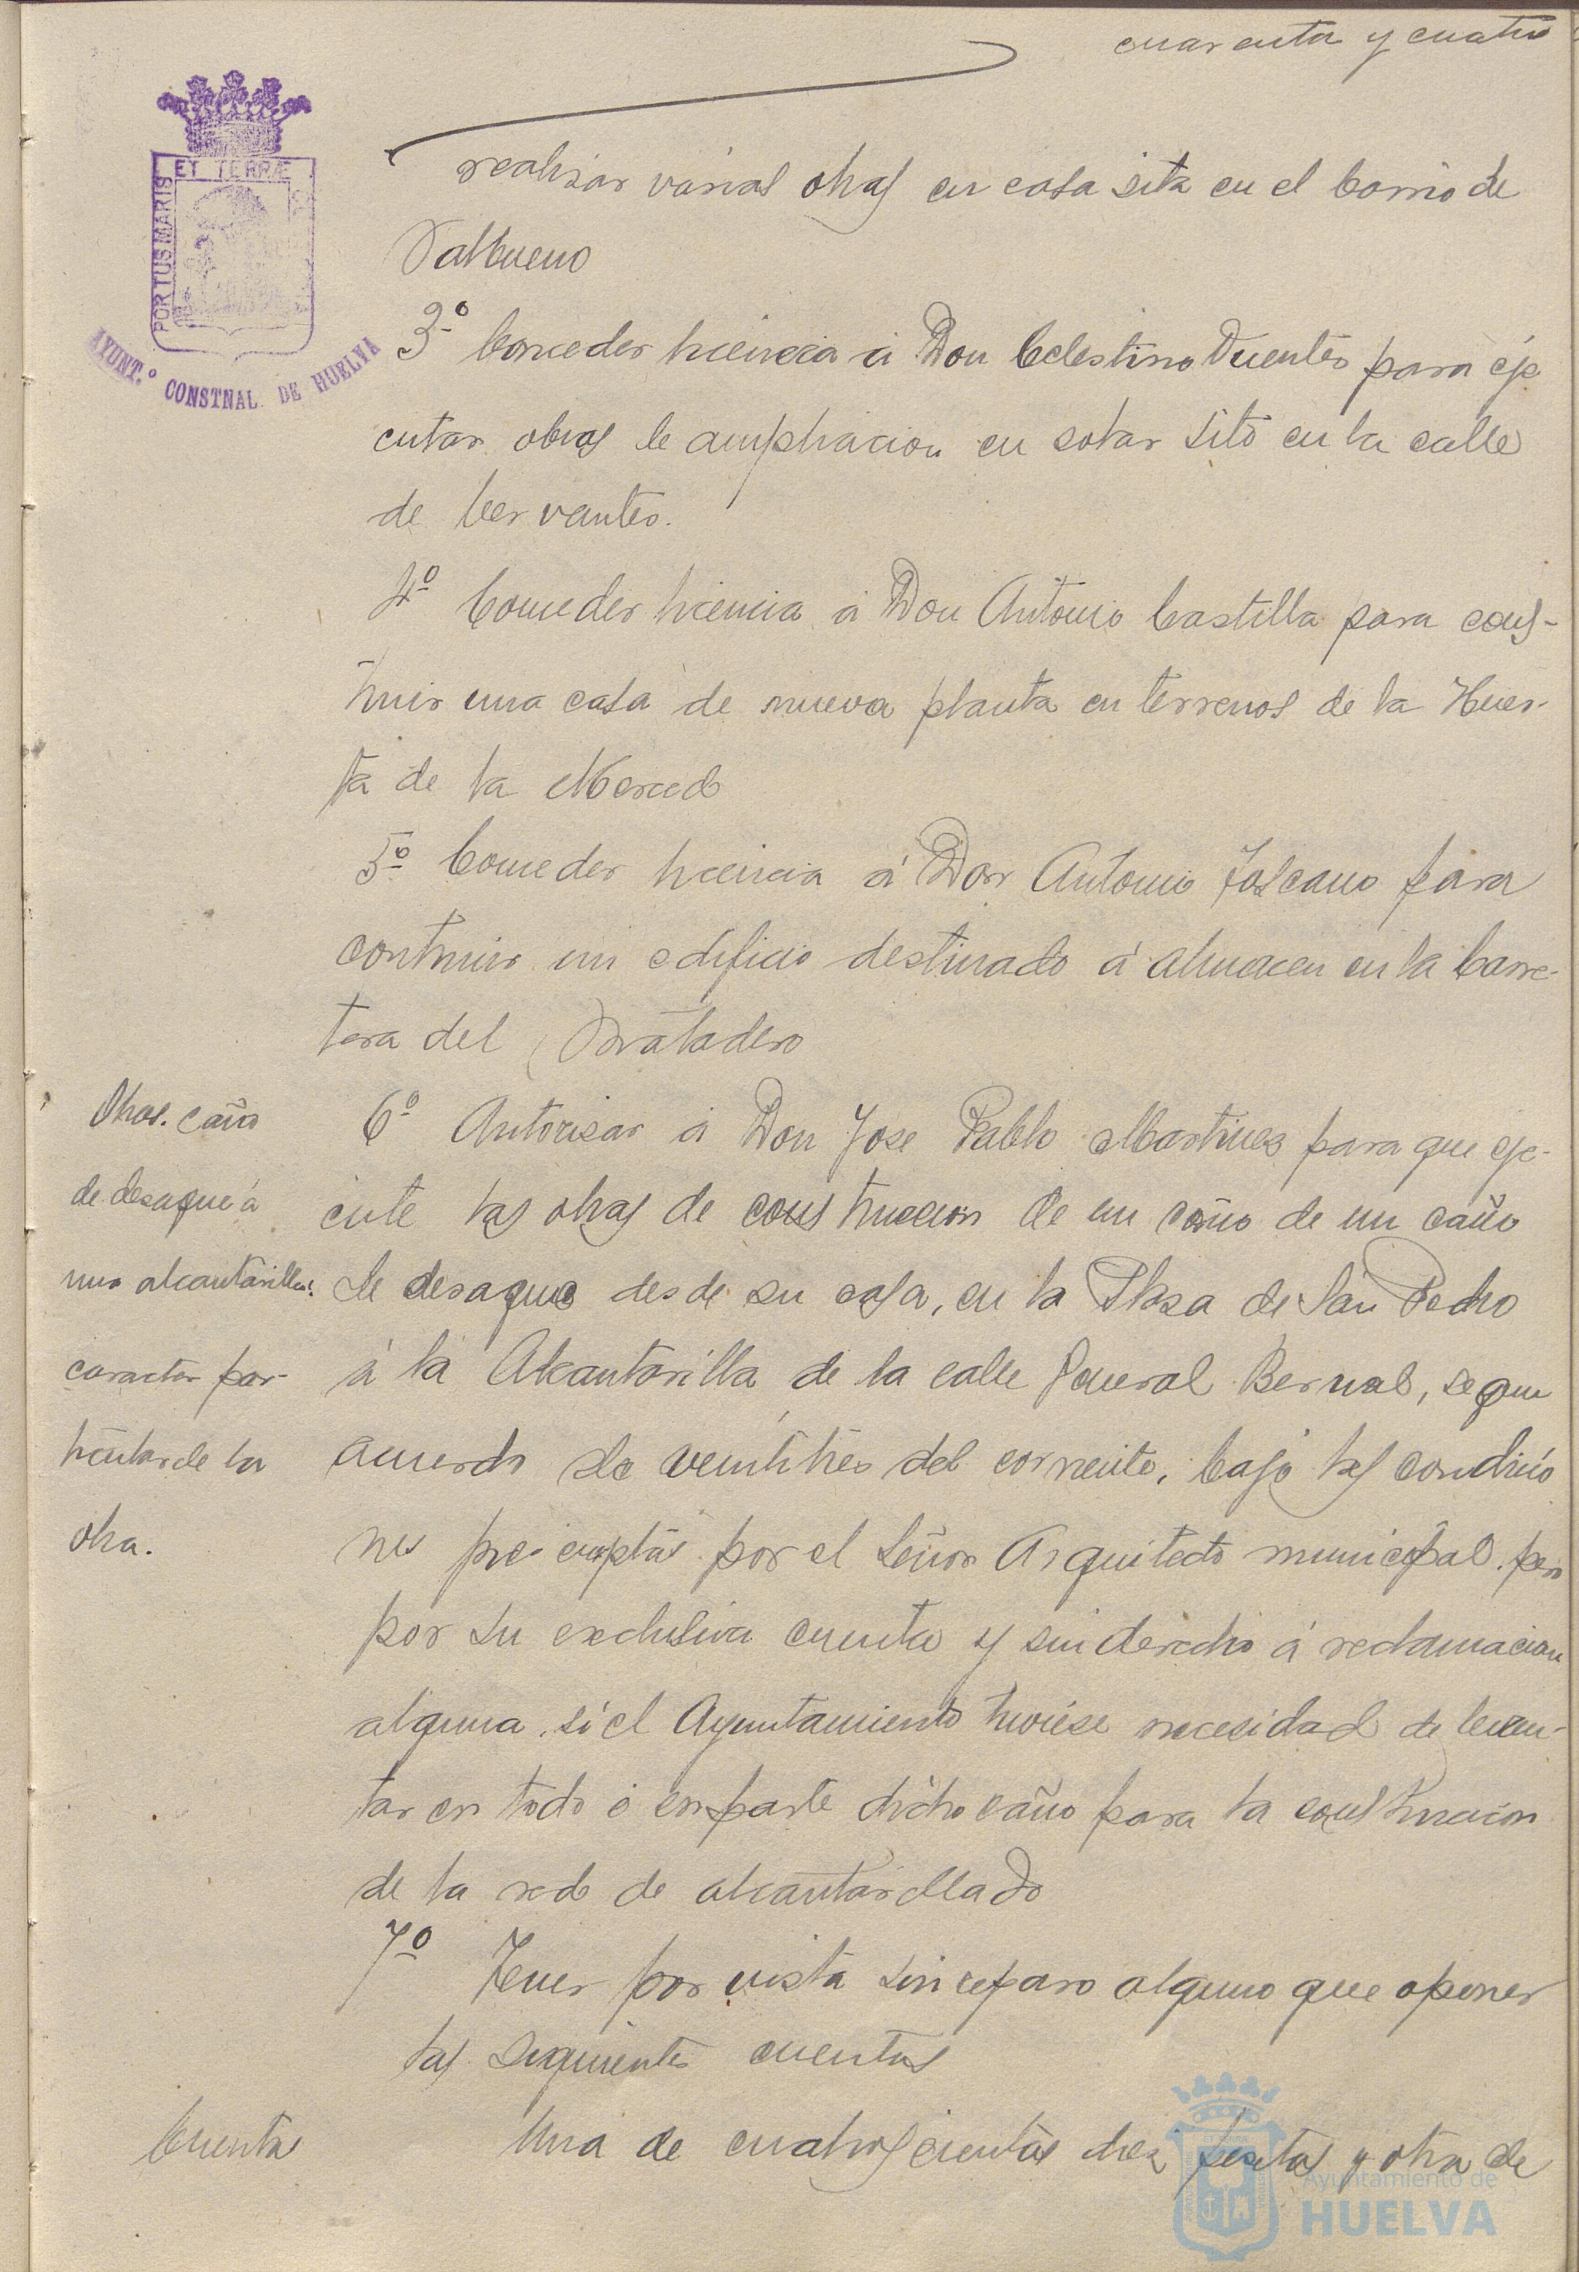 cuarenta y cuatro
ET TERRÆ
PORTUS MARIS
AYUNT.º CONSTNAL. DE HUELVA
realizar varias obras en casa sita en el barrio de
Valbueno
3º Conceder licencia á Don Celestino Fuentes para eje
cutar obras de ampliacion en solar sito en la calle
de Cervantes.
4º Conceder licencia á Don Antonio Castilla para cons-
truir una casa de nueva planta en terrenos de la Huer-
ta de la Merced
5º Conceder licencia á Don Antonio Toscano para
contruir un edificio destinado á almacen en la Carre-
tera del Matadero
Obras. caño
de desague á
una alcantarilla:
caracter par-
ticular de la
obra.
6º Autorizar á Don Jose Pablo Martinez para que eje-
cute las obras de construccion de un caño de un caño
de desague desde su casa, en la Plaza de San Pedro
á la Alcantarilla de la calle General Bernal, segun
acuerdo de veintitres del corriente, bajo las condicio
nes preceptas por el Señor Arquitecto municipal. pero
por su exclusiva cuenta y sin derecho á reclamacion
alguna si el Ayuntamiento tuviese necesidad de levan-
tar en todo ó en parte dicho caño para la construccion
de la red de alcantarillado
7º Tener por vista sin reparo alguno que oponer
las siguientes cuentas
Cuentas
Una de cuatroscientas diez pesetas y otra de
Ayuntamiento de
HUELVA